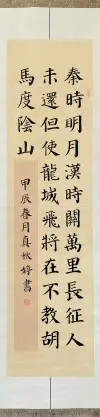 秦時明月漢時關萬里長征人
未還但使龍城飛將在不教胡
馬度陰山
甲辰春月真
書